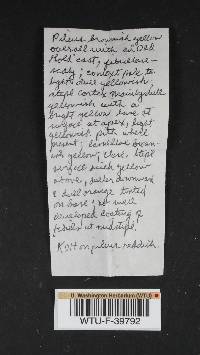 Pileus brownish yellow
overall with an Old
Gold cast, fibrillose-
scaly; context pale to
light dull yellowish,
stipe cortex mainly dull
yellowish with a
bright yellow line at
surface at apex, light
yellowish pith where
present; lamellae brown-
ish yellow; stipe
surface much yellow
above, duller downward
& dull orange tinted
on base; a well
developed coating of
fibrils at midstipe.
KOH on pileus reddish.
U. Washington Herbarium (WTU)
WTU-F-39792